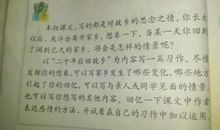 本组课文,写的都是对故乡的思念之情,你长大
以后,或许会离开家乡。想象一下,当某一天你回到
了阔别已久的家乡,将会是怎样的情景呢?
以"二十年后回故乡"为内容写一篇习作。尽情
发挥你的想象,可以写家乡发生了哪些变化,哪些地方
引起了你的回忆,可以写与亲人或同学见面的情景,
也可以写你想写的其他内容。回忆一下课文中作者
表达感情的方法,并试着在自己的习作中加以运用。